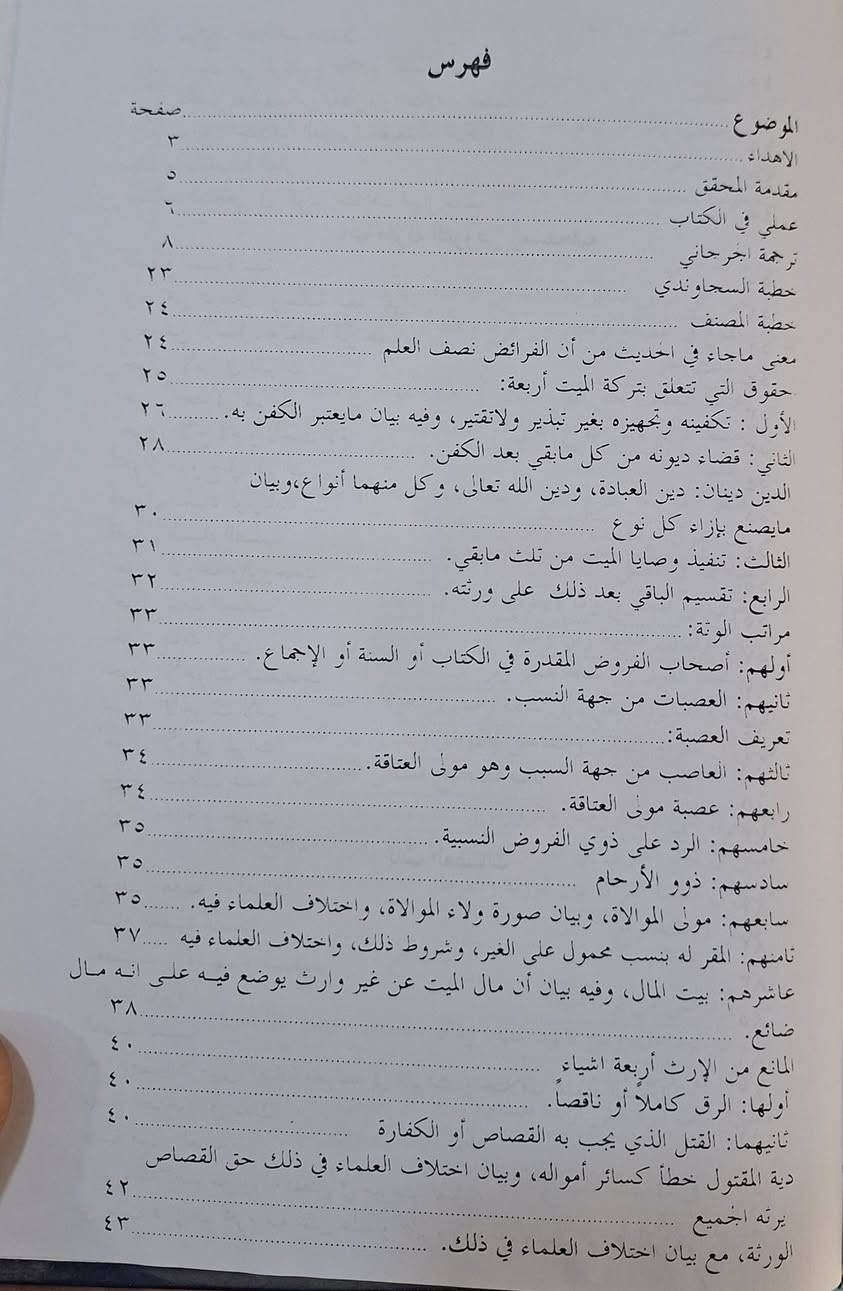 فهرس
الموضوع صفحة
الاهداء ٣
مقدمة المحقق ٥
عملي في الكتاب ٦
ترجمة الجرجاني ٨
خطبة السجاوندي ٢٣
خطبة المصنف ٢٤
معنى ماجاء في الحديث من أن الفرائض نصف العلم ٢٤
حقوق التي تتعلق بتركة الميت أربعة: ٢٥
الأول : تكفينه وتجهيزه بغير تبذير ولاتقتير، وفيه بيان مايعتبر الكفن به. ٢٦
الثاني: قضاء ديونه من كل مابقي بعد الكفن. ٢٨
الدين دينان: دين العبادة، ودين الله تعالى، وكل منهما أنواع،وبيان
مايصنع بإزاء كل نوع ٣٠
الثالث: تنفيذ وصايا الميت من تلث مابقي. ٣١
الرابع: تقسيم الباقي بعد ذلك على ورثته. ٣٢
مراتب الوثة: ٣٣
أولهم: أصحاب الفروض المقدرة في الكتاب أو السنة أو الإجماع. ٣٣
ثانيهم: العصبات من جهة النسب. ٣٣
تعريف العصبة: ٣٣
ثالثهم: العاصب من جهة السبب وهو مولى العتاقة. ٣٤
رابعهم: عصبة مولى العتاقة. ٣٤
خامسهم: الرد على ذوي الفروض النسبية. ٣٥
سادسهم: ذوو الأرحام ٣٥
سابعهم: مولى الموالاة، وبيان صورة ولاء الموالاة، واختلاف العلماء فيه. ٣٥
ثامنهم: المقر له بنسب محمول على الغير، وشروط ذلك، واختلاف العلماء فيه ٣٧
عاشرهم: بيت المال، وفيه بيان أن مال الميت عن غير وارث يوضع فيه على انه مال
ضائع. ٣٨
المانع من الإرث أربعة اشياء ٤٠
أولها: الرق كاملاً أو ناقصاً. ٤٠
ثانيهما: القتل الذي يجب به القصاص أو الكفارة ٤٠
دية المقتول خطأ كسائر أمواله، وبيان اختلاف العلماء في ذلك حق القصاص
يرثه الجميع ٤٢
الورثة، مع بيان اختلاف العلماء في ذلك. ٤٣